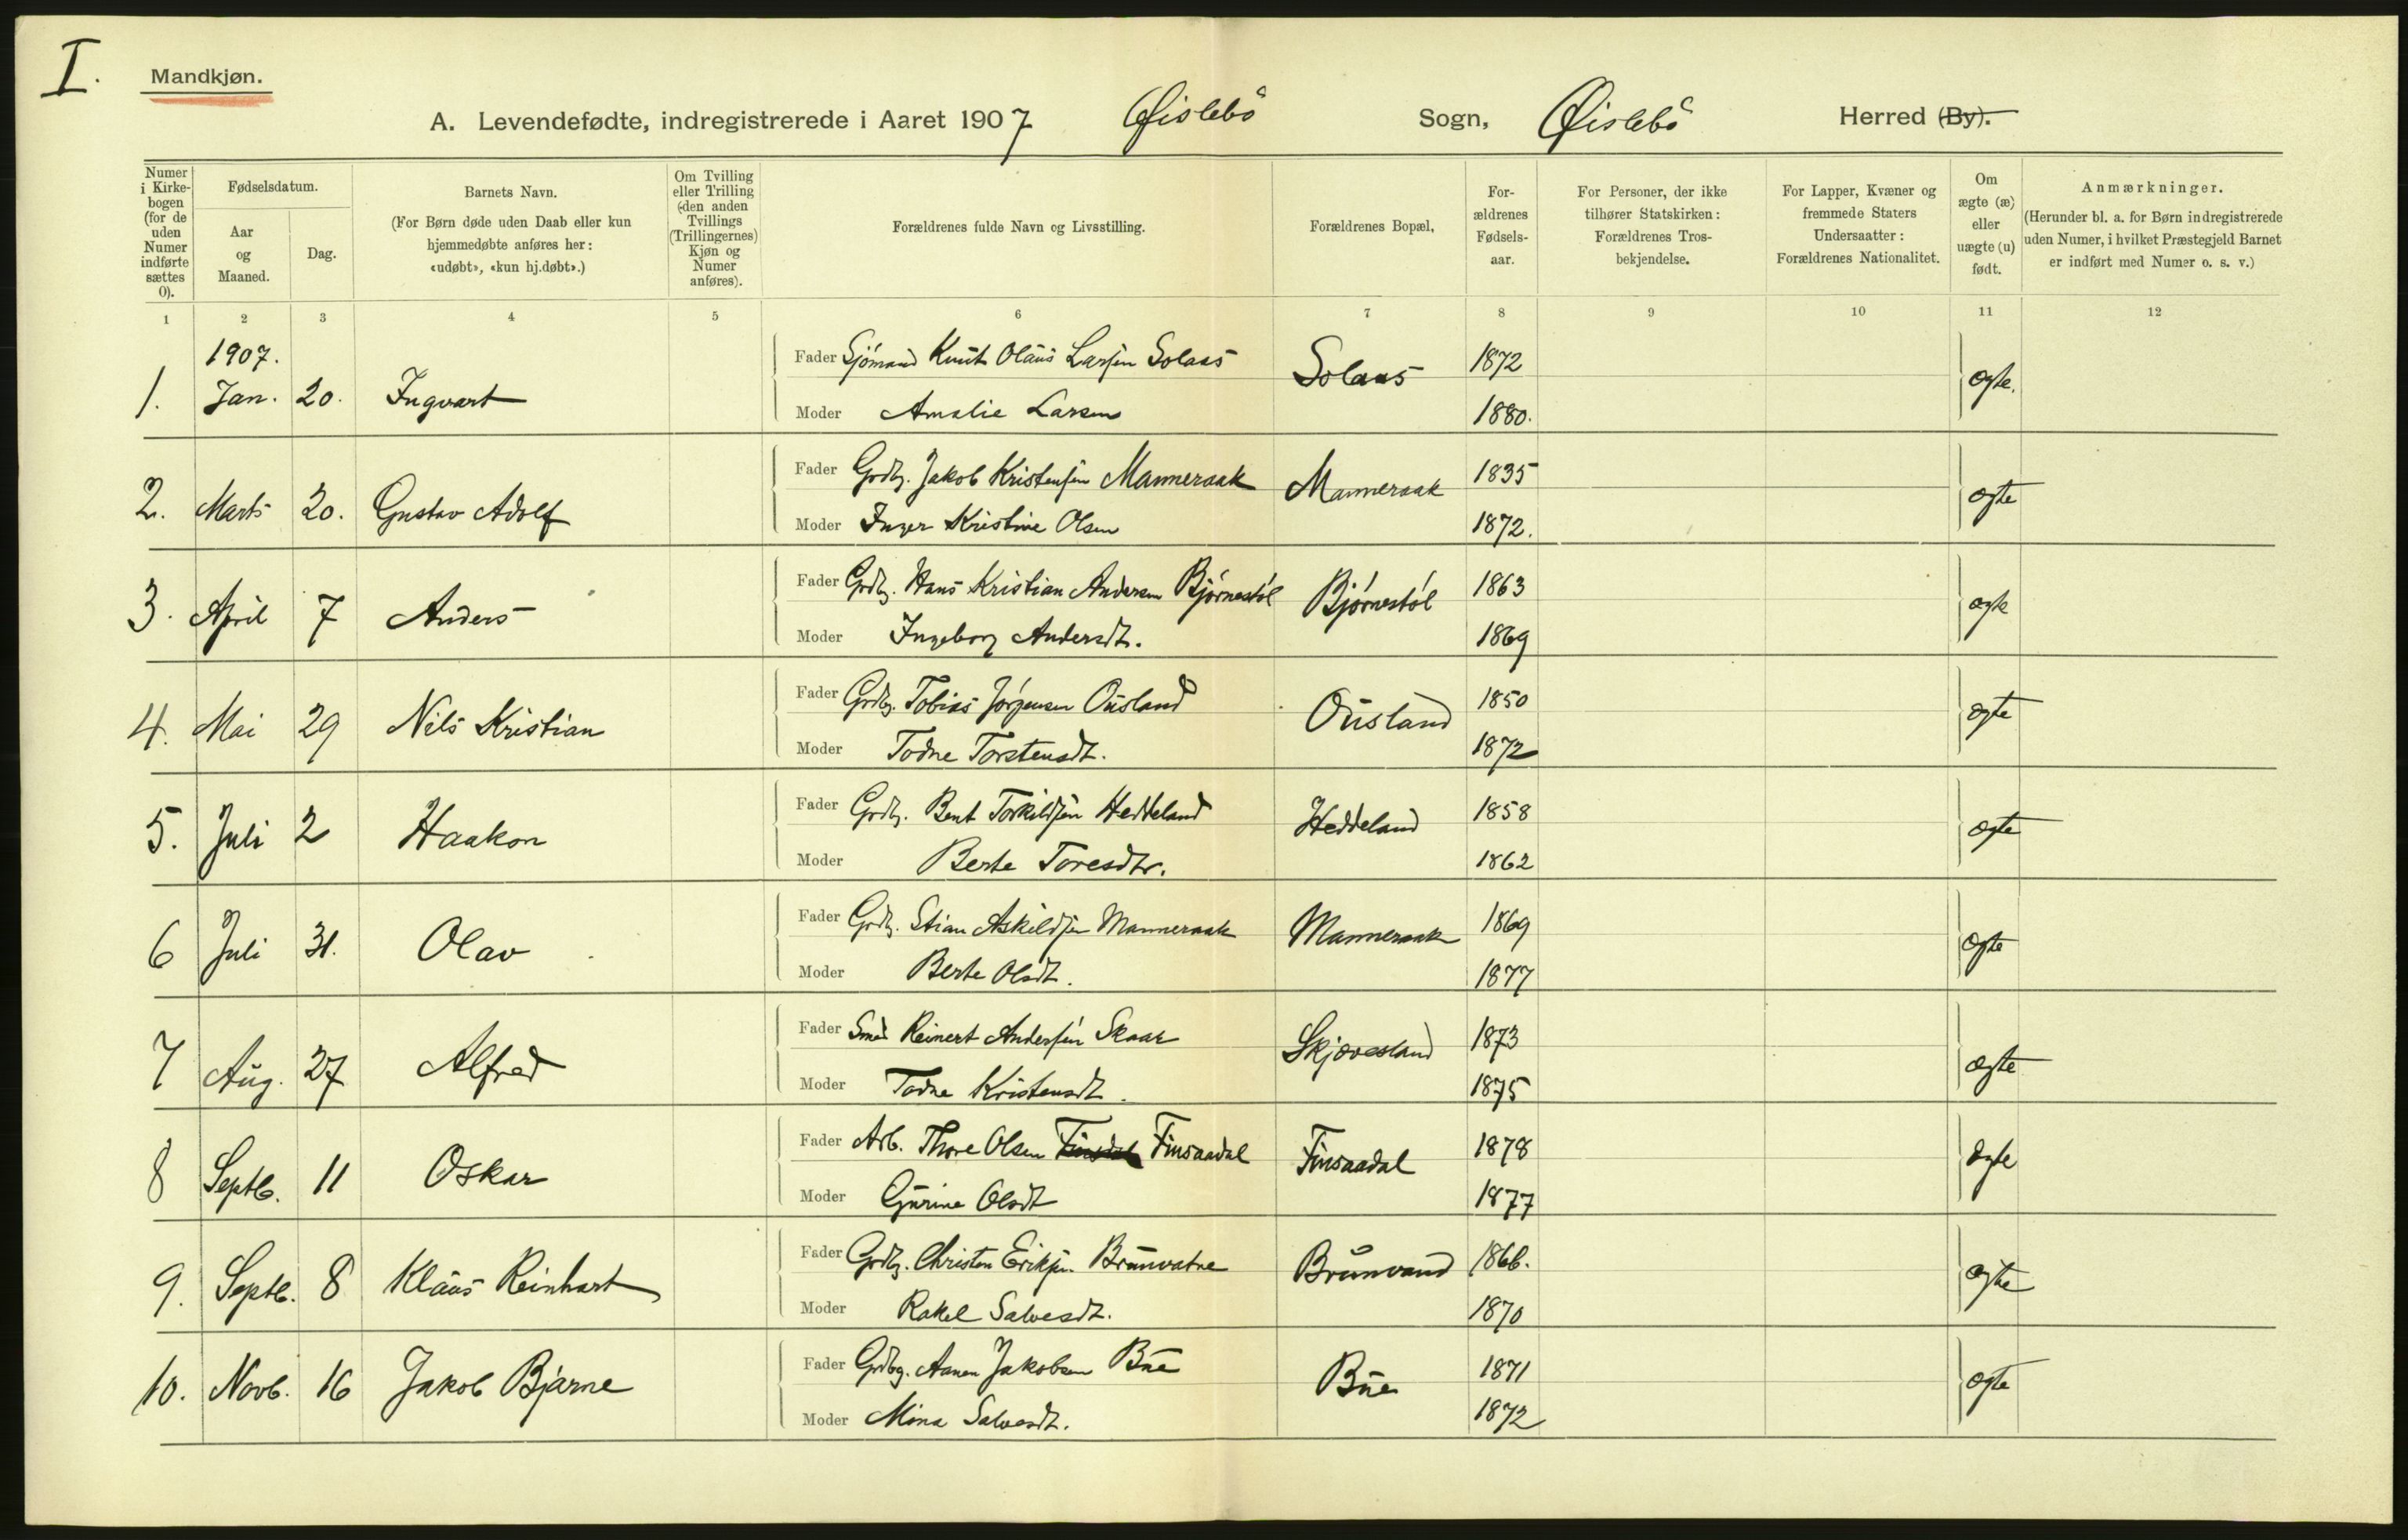 I.
Mandkjøn.
A. Levendefødte, indregistrerede i Aaret 1907 Øislebö Sogn, Øislebö Herred (By).
Numer i Kirke-bogen (for de uden Numer indførte sættes 0).
Fødselsdatum.
Aar og Maaned.
Dag.
Barnets Navn.
(For Børn døde uden Daab eller kun hjemmedøbte anføres her: «udøbt», «kun hj.døbt».)
Om Tvilling eller Trilling (den anden Tvillings (Trillingernes) Kjøn og Numer anføres).
Forældrenes fulde Navn og Livsstilling.
Forældrenes Bopæl,
For-ældrenes Fødsels-aar.
For Personer, der ikke tilhører Statskirken: Forældrenes Tros-bekjendelse.
For Lapper, Kvæner og fremmede Staters Undersaatter: Forældrenes Nationalitet.
Om ægte (æ) eller uægte (u) født.
Anmærkninger.
(Herunder bl. a. for Børn indregistrerede uden Numer, i hvilket Præstegjeld Barnet er indført med Numer o. s. v.)
1 2 3 4 5 6 7 8 9 10 11 12
1907.
1. Jan. 20. Ingvart Fader Sjömand Knut Olaus Larsen Solaas Solaas 1872 ægte.
Moder Amalie Larsen 1880.
2. Marts 20. Gustav Adolf Fader Grdbg. Jakob Kristensen Manneraak Manneraak 1835 ægte
Moder Inger Kristine Olsen 1872.
3. April 7 Anders Fader Grdbg. Hans Kristian Andersen Björnestöl Björnestöl 1863 ægte
Moder Ingeborg Andersdt. 1869
4. Mai 29 Nils Kristian Fader Grdbg. Tobias Jörgensen Ousland Ousland 1850 ægte
Moder Todne Torstensdt. 1872
5. Juli 2 Haakon Fader Grdbg. Bent Torkildsen Heddeland Heddeland 1858 ægte
Moder Berte Toresdtr. 1862
6 Juli 31. Olav Fader Grdb. Stian Askildsen Manneraak Manneraak 1869 ægte
Moder Berte Olsdt. 1877
7 Aug. 27 Alfred Fader Smed Reinert Andersen Skaar Skjævesland 1873 ægte
Moder Todne Kristensdt. 1875
8 Septb. 11 Oskar Fader Arb. Thore Olsen Finsaadal Finsaadal 1878 ægte
Moder Gurine Olsdt 1877
9. Septb. 8 Klaus Reinhart Fader Grdbg. Christen Eriksen Brunvatne Brunvand 1866. ægte
Moder Rakel Salvesdt. 1870
10. Novb. 16 Jakob Bjarne Fader Grdbg. Aanen Jakobsen Bue Bue 1871 ægte
Moder Mina Salvesdt. 1872